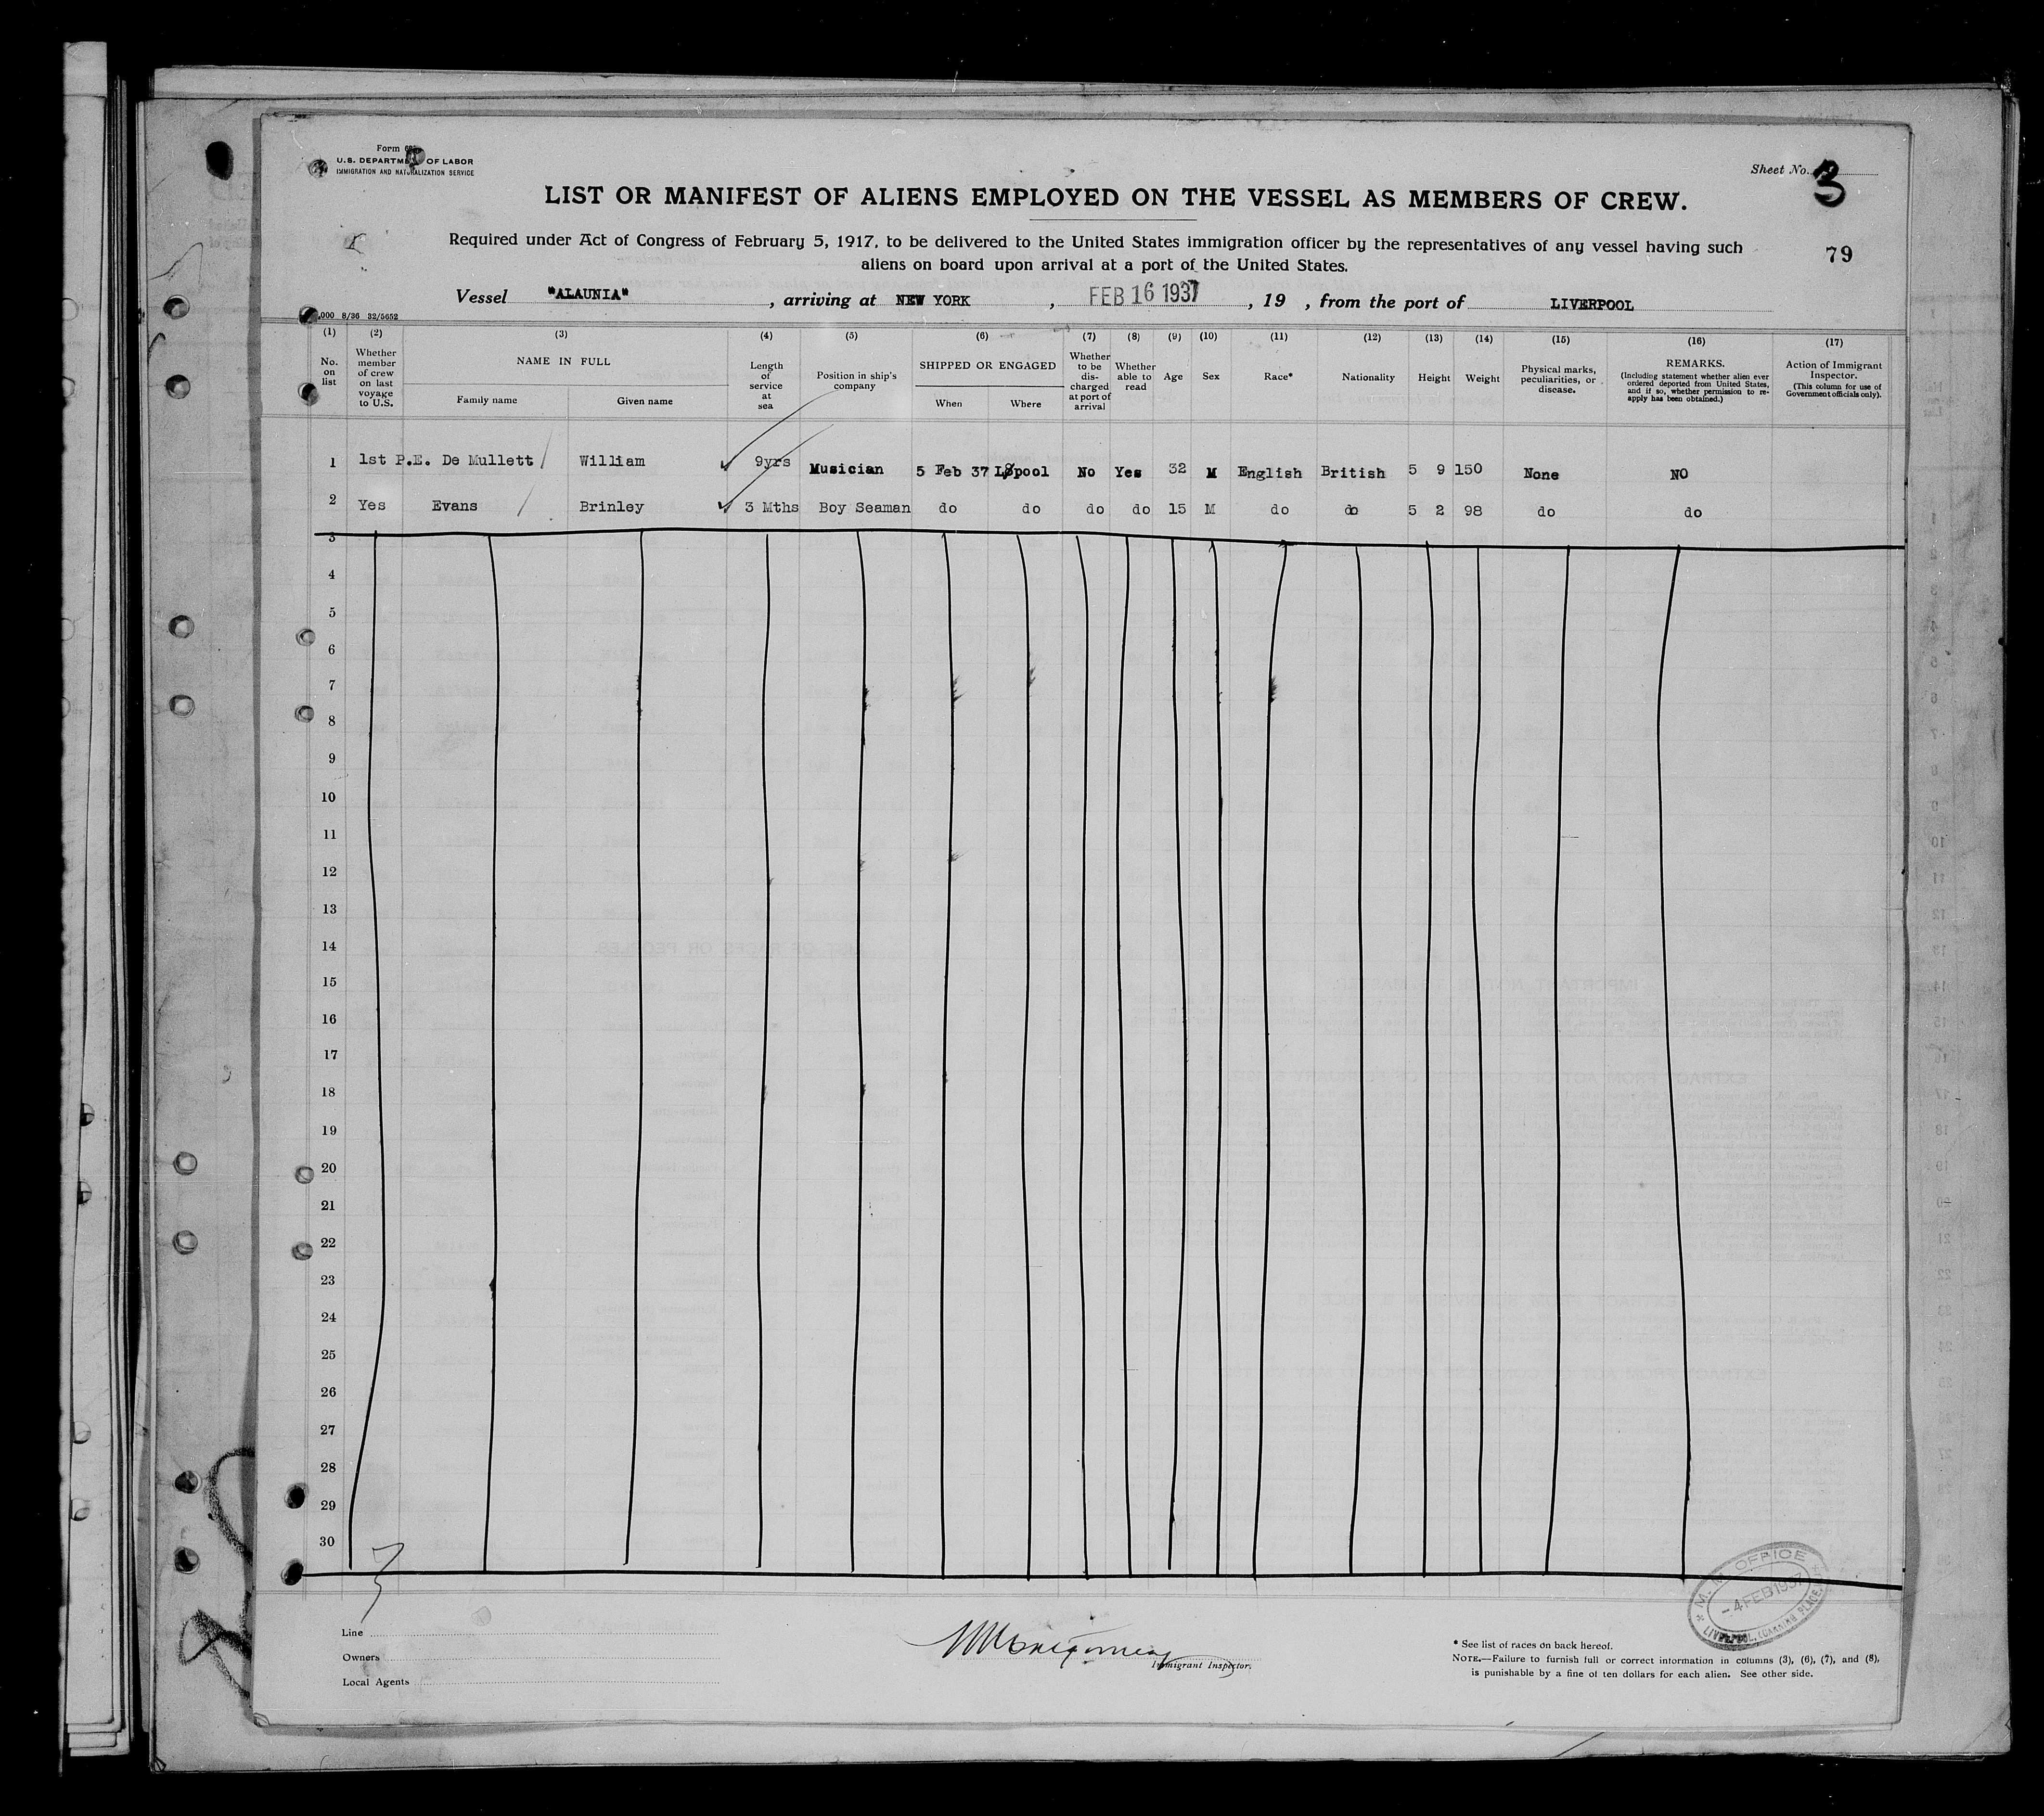 Form
U.S. DEPARTMENT OF LABOR
IMMIGRATION AND NATURALIZATION SERVICE
Sheet No. 3
LIST OR MANIFEST OF ALIENS EMPLOYED ON THE VESSEL AS MEMBERS OF CREW.
Required under Act of Congress of February 5, 1917, to be delivered to the United States immigration officer by the representatives of any vessel having such
aliens on board upon arrival at a port of the United States.
79
Vessel "ALAUNIA", arriving at NEW YORK, FEB 16 1937, 19 , from the port of LIVERPOOL
,000 8/36 32/5652
(1) (2) (3) (4) (5) (6) (7) (8) (9) (10) (11) (12) (13) (14) (15) (16) (17)
No. on list
Whether member of crew on last voyage to U.S.
NAME IN FULL
Family name
Given name
Length of service at sea
Position in ship's company
SHIPPED OR ENGAGED
When
Where
Whether to be discharged at port of arrival
Whether able to read
Age
Sex
Race*
Nationality
Height
Weight
Physical marks, peculiarities, or disease.
REMARKS.
(Including statement whether alien ever ordered deported from United States, and if so, whether permission to reapply has been obtained.)
Action of Immigrant Inspector.
(This column for use of Government officials only).
1 1st P.E. De Mullett William 9yrs Musician 5 Feb 37 L'pool No Yes 32 M English British 5 9 150 None NO
2 Yes Evans Brinley 3 Mths Boy Seaman do do do do 15 M do do 5 2 98 do do
3
4
5
6
7
8
9
10
11
12
13
14
15
16
17
18
19
20
21
22
23
24
25
26
27
28
29
30
M.M. OFFICE
-4 FEB 1937
LIVERPOOL, CANNING PLACE
Line
Owners
Local Agents
Montgomery
Immigrant Inspector.
* See list of races on back hereof.
NOTE.—Failure to furnish full or correct information in columns (3), (6), (7), and (8),
is punishable by a fine of ten dollars for each alien. See other side.